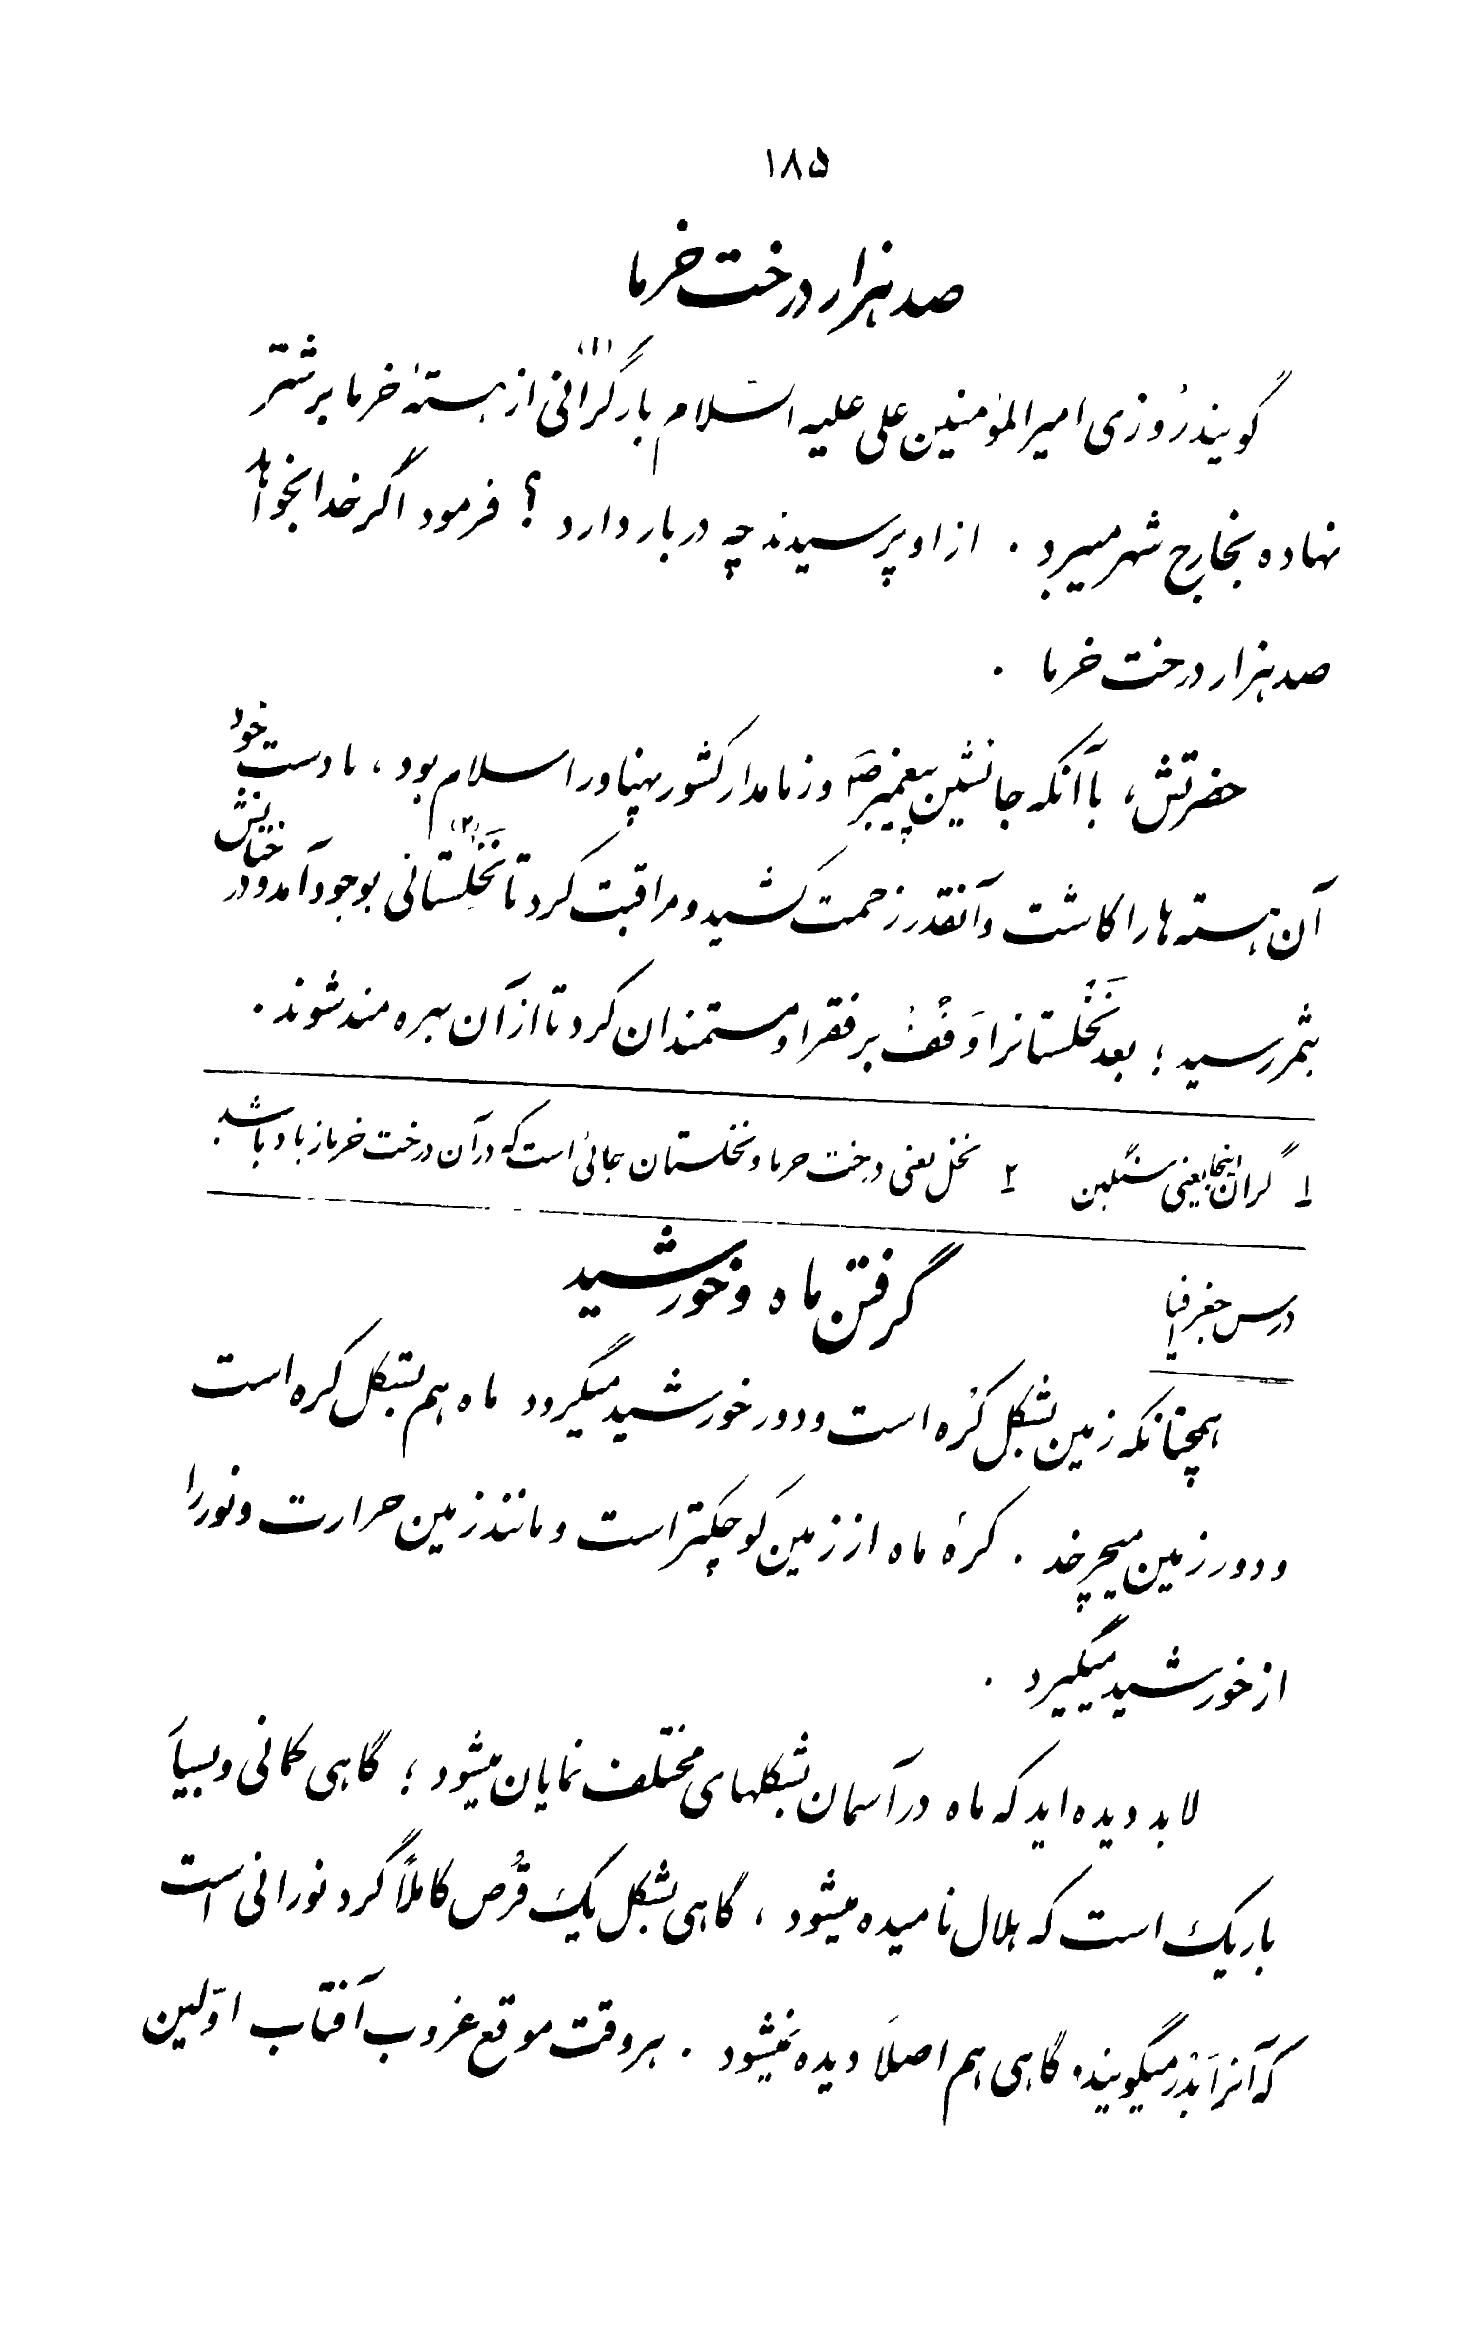 ۱۸۵
صد هزار درخت خرما
گویند رُوزی امیرالمؤمنین علی علیه السّلام بار گرانی (۱) از هستهٔ خرما بر شتر
نهاده بخارج شهر میبرد . از او پرسیدند چه در بار دارد ؟ فرمود اگر خدا بخواهد
صد هزار درخت خرما .
حضرتش ، با آنکه جانشین پیغمبر صَ و زمامدار کشور پهناور اسلام بود ، با دست خود
آن هسته ها را کاشت و آنقدر زحمت کشید و مراقبت کرد تا نَخْلِستانی (۲) بوجود آمد و درختهایش
بثمر رسید ؛ بعد نَخْلستانرا وَقْفْ بر فقرا و مستمندان کرد تا از آن بهره مند شوند .
۱ـ گران اینجا یعنی سنگین ۲ـ نخل یعنی درخت خرما و نخلستان جائی است که در آن درخت خرما زیاد باشد
گرفتن ماه و خورشید
درس جغرافیا
همچنانکه زمین بشکل کُره است و دور خورشید میگردد ماه هم بشکل کره است
و دور زمین میچرخد . کرهٔ ماه از زمین کوچکتر است و مانند زمین حرارت و نور را
از خورشید میگیرد .
لابد دیده اید که ماه در آسمان بشکلهای مختلف نمایان میشود ؛ گاهی کمانی و بسیار
باریک است که هلال نامیده میشود ، گاهی بشکل یک قُرص کاملاً گرد نورانی است
که آنرا بَدْر میگویند، گاهی هم اصلاً دیده نمیشود . هر وقت موقع غروب آفتاب اوّلین